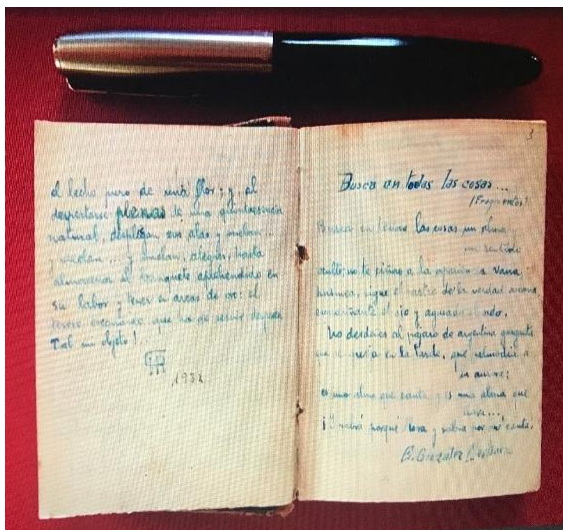 el lecho puro de una flor; y al
despertarse plenas de una quintaesencia
natural, desplegan sus alas y vuelan...
y vuelan... y vuelan, alegres, hasta
almacenar el banquete aprehendido en
su labor y tener en arcas de oro: el
que ha de servir después
Tal mi objeto!
1952
3
Busca en todas las cosas...
(Fragmentos)
Busca en todas las cosas un alma
un sentido
oculto; no te ciñas a la apariencia vana;
husmea, sigue el rastro de la verdad arcana
el ojo y aguzado el oído.
No desdeñes al pájaro de argentina garganta
que en la tarde, que salmodia a
la aurora;
es un alma que canta y es una alma que
llora...
¡Y sabrá porqué llora y sabrá por qué canta!
E. González Martínez